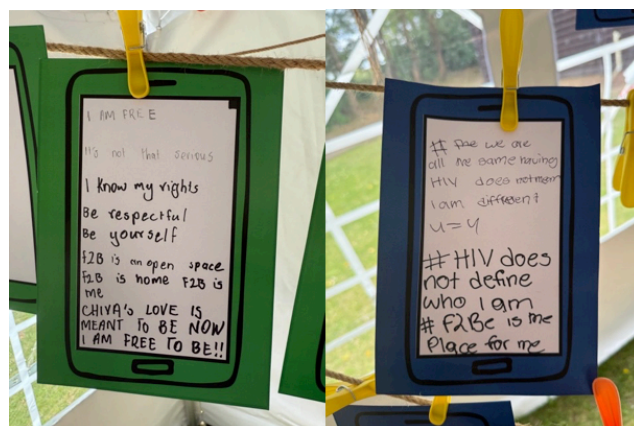 I AM FREE
It's not that serious
I Know my rights
Be respectful
Be yourself
F2B is an open space
F2B is home F2B is
me
CHIVA'S LOVE IS
MEANT TO BE NOW
I AM FREE TO BE!!
# we are
all the same having
HIV does not mean
I am different
u=u
# HIV does
not define
who I am
# F2Be is the
Place for me